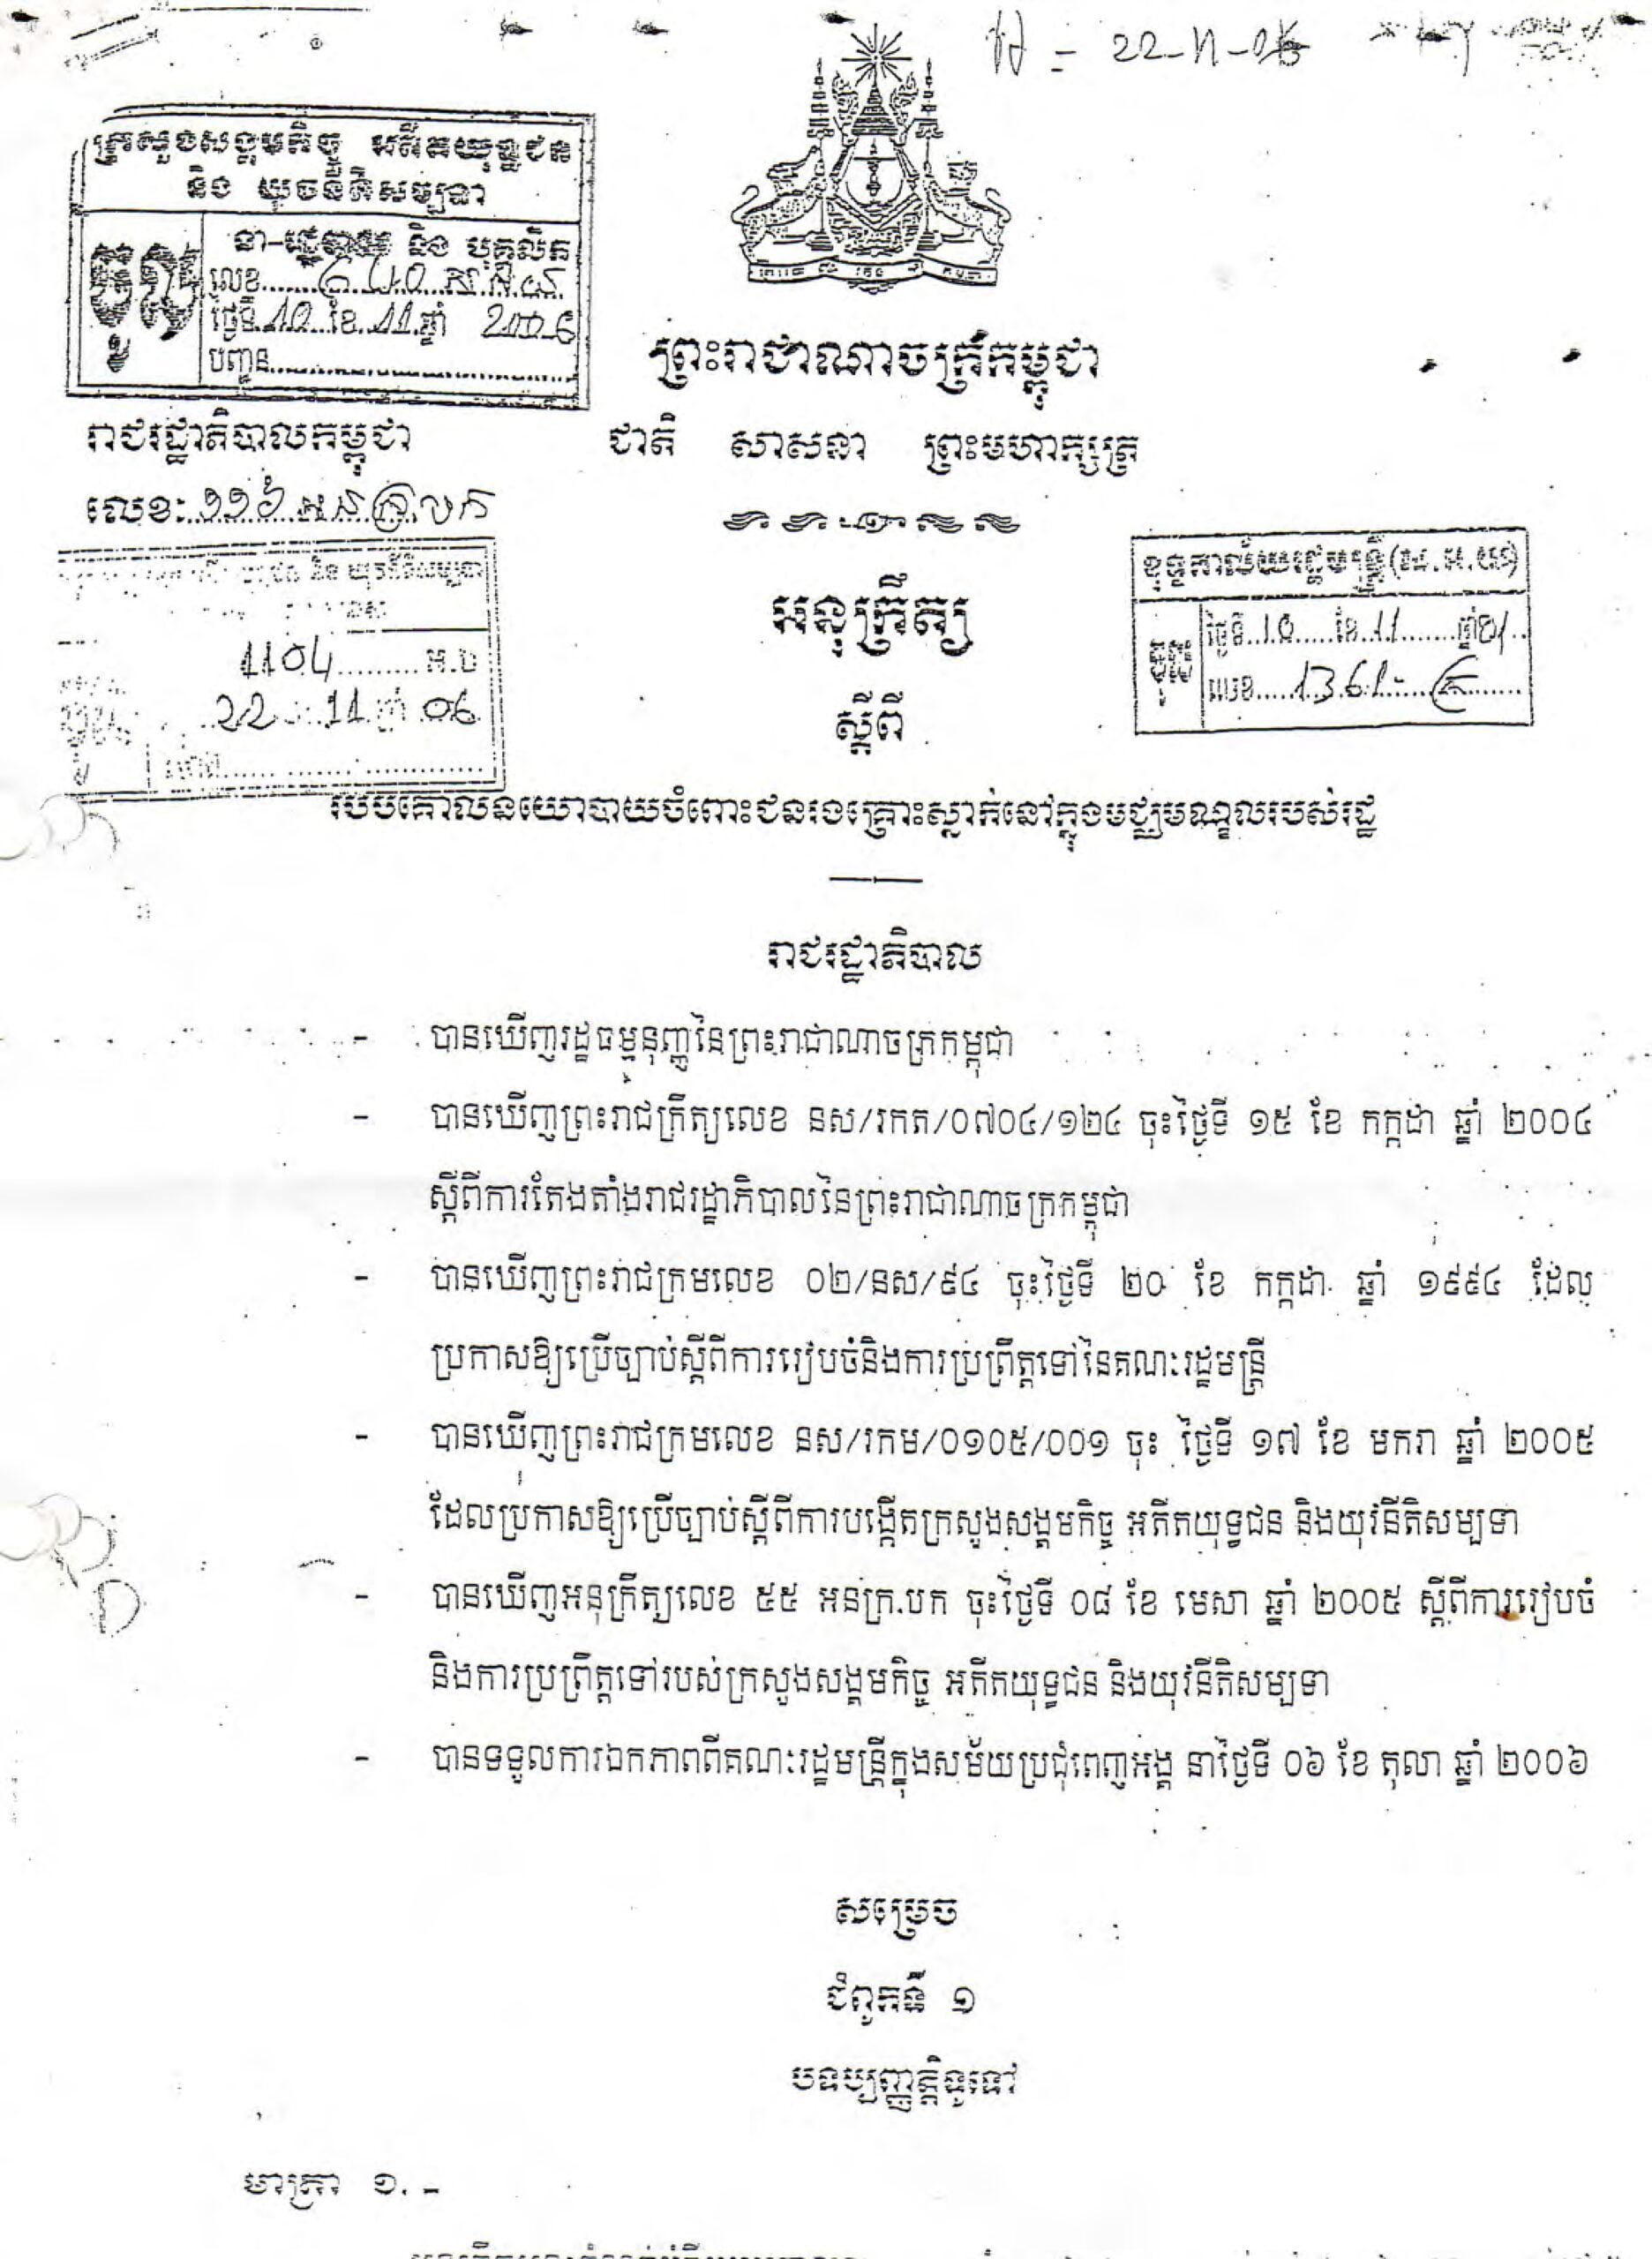 22-11-06
ក្រសួងសង្គមកិច្ច អតីតយុទ្ធជន
និង យុវនីតិសម្បទា
នា-រដ្ឋបាល និង បុគ្គលិក
ចូល
លេខ
ថ្ងៃទី 10 ខែ 11 ឆ្នាំ 2006
បញ្ជូន
ព្រះរាជាណាចក្រកម្ពុជា
រាជរដ្ឋាភិបាលកម្ពុជា
ជាតិ សាសនា ព្រះមហាក្សត្រ
លេខ: ១១៦ អនក្រ.បក
ខុទ្ទកាល័យរដ្ឋមន្ត្រី(ស.អ.យ)
ចូល
ថ្ងៃទី 10 ខែ 11 ឆ្នាំ
លេខ 1361
និង យុវនីតិសម្បទា
1104
22 11 ឆ្នាំ 06
អនុក្រឹត្យ
ស្តីពី
របបគោលនយោបាយចំពោះជនរងគ្រោះស្នាក់នៅក្នុងមជ្ឈមណ្ឌលរបស់រដ្ឋ
រាជរដ្ឋាភិបាល
- បានឃើញរដ្ឋធម្មនុញ្ញនៃព្រះរាជាណាចក្រកម្ពុជា
- បានឃើញព្រះរាជក្រឹត្យលេខ នស/រកត/០៧០៤/១២៤ ចុះថ្ងៃទី ១៥ ខែ កក្កដា ឆ្នាំ ២០០៤
ស្តីពីការតែងតាំងរាជរដ្ឋាភិបាលនៃព្រះរាជាណាចក្រកម្ពុជា
- បានឃើញព្រះរាជក្រមលេខ ០២/នស/៩៤ ចុះថ្ងៃទី ២០ ខែ កក្កដា ឆ្នាំ ១៩៩៤ ដែល
ប្រកាសឱ្យប្រើច្បាប់ស្តីពីការរៀបចំនិងការប្រព្រឹត្តទៅនៃគណៈរដ្ឋមន្ត្រី
- បានឃើញព្រះរាជក្រមលេខ នស/រកម/០១០៥/០០១ ចុះ ថ្ងៃទី ១៧ ខែ មករា ឆ្នាំ ២០០៥
ដែលប្រកាសឱ្យប្រើច្បាប់ស្តីពីការបង្កើតក្រសួងសង្គមកិច្ច អតីតយុទ្ធជន និងយុវនីតិសម្បទា
- បានឃើញអនុក្រឹត្យលេខ ៥៥ អនក្រ.បក ចុះថ្ងៃទី ០៨ ខែ មេសា ឆ្នាំ ២០០៥ ស្តីពីការរៀបចំ
និងការប្រព្រឹត្តទៅរបស់ក្រសួងសង្គមកិច្ច អតីតយុទ្ធជន និងយុវនីតិសម្បទា
- បានទទួលការឯកភាពពីគណៈរដ្ឋមន្ត្រីក្នុងសម័យប្រជុំពេញអង្គ នាថ្ងៃទី ០៦ ខែ តុលា ឆ្នាំ ២០០៦
សម្រេច
ជំពូកទី ១
បទប្បញ្ញត្តិទូទៅ
មាត្រា ១. -